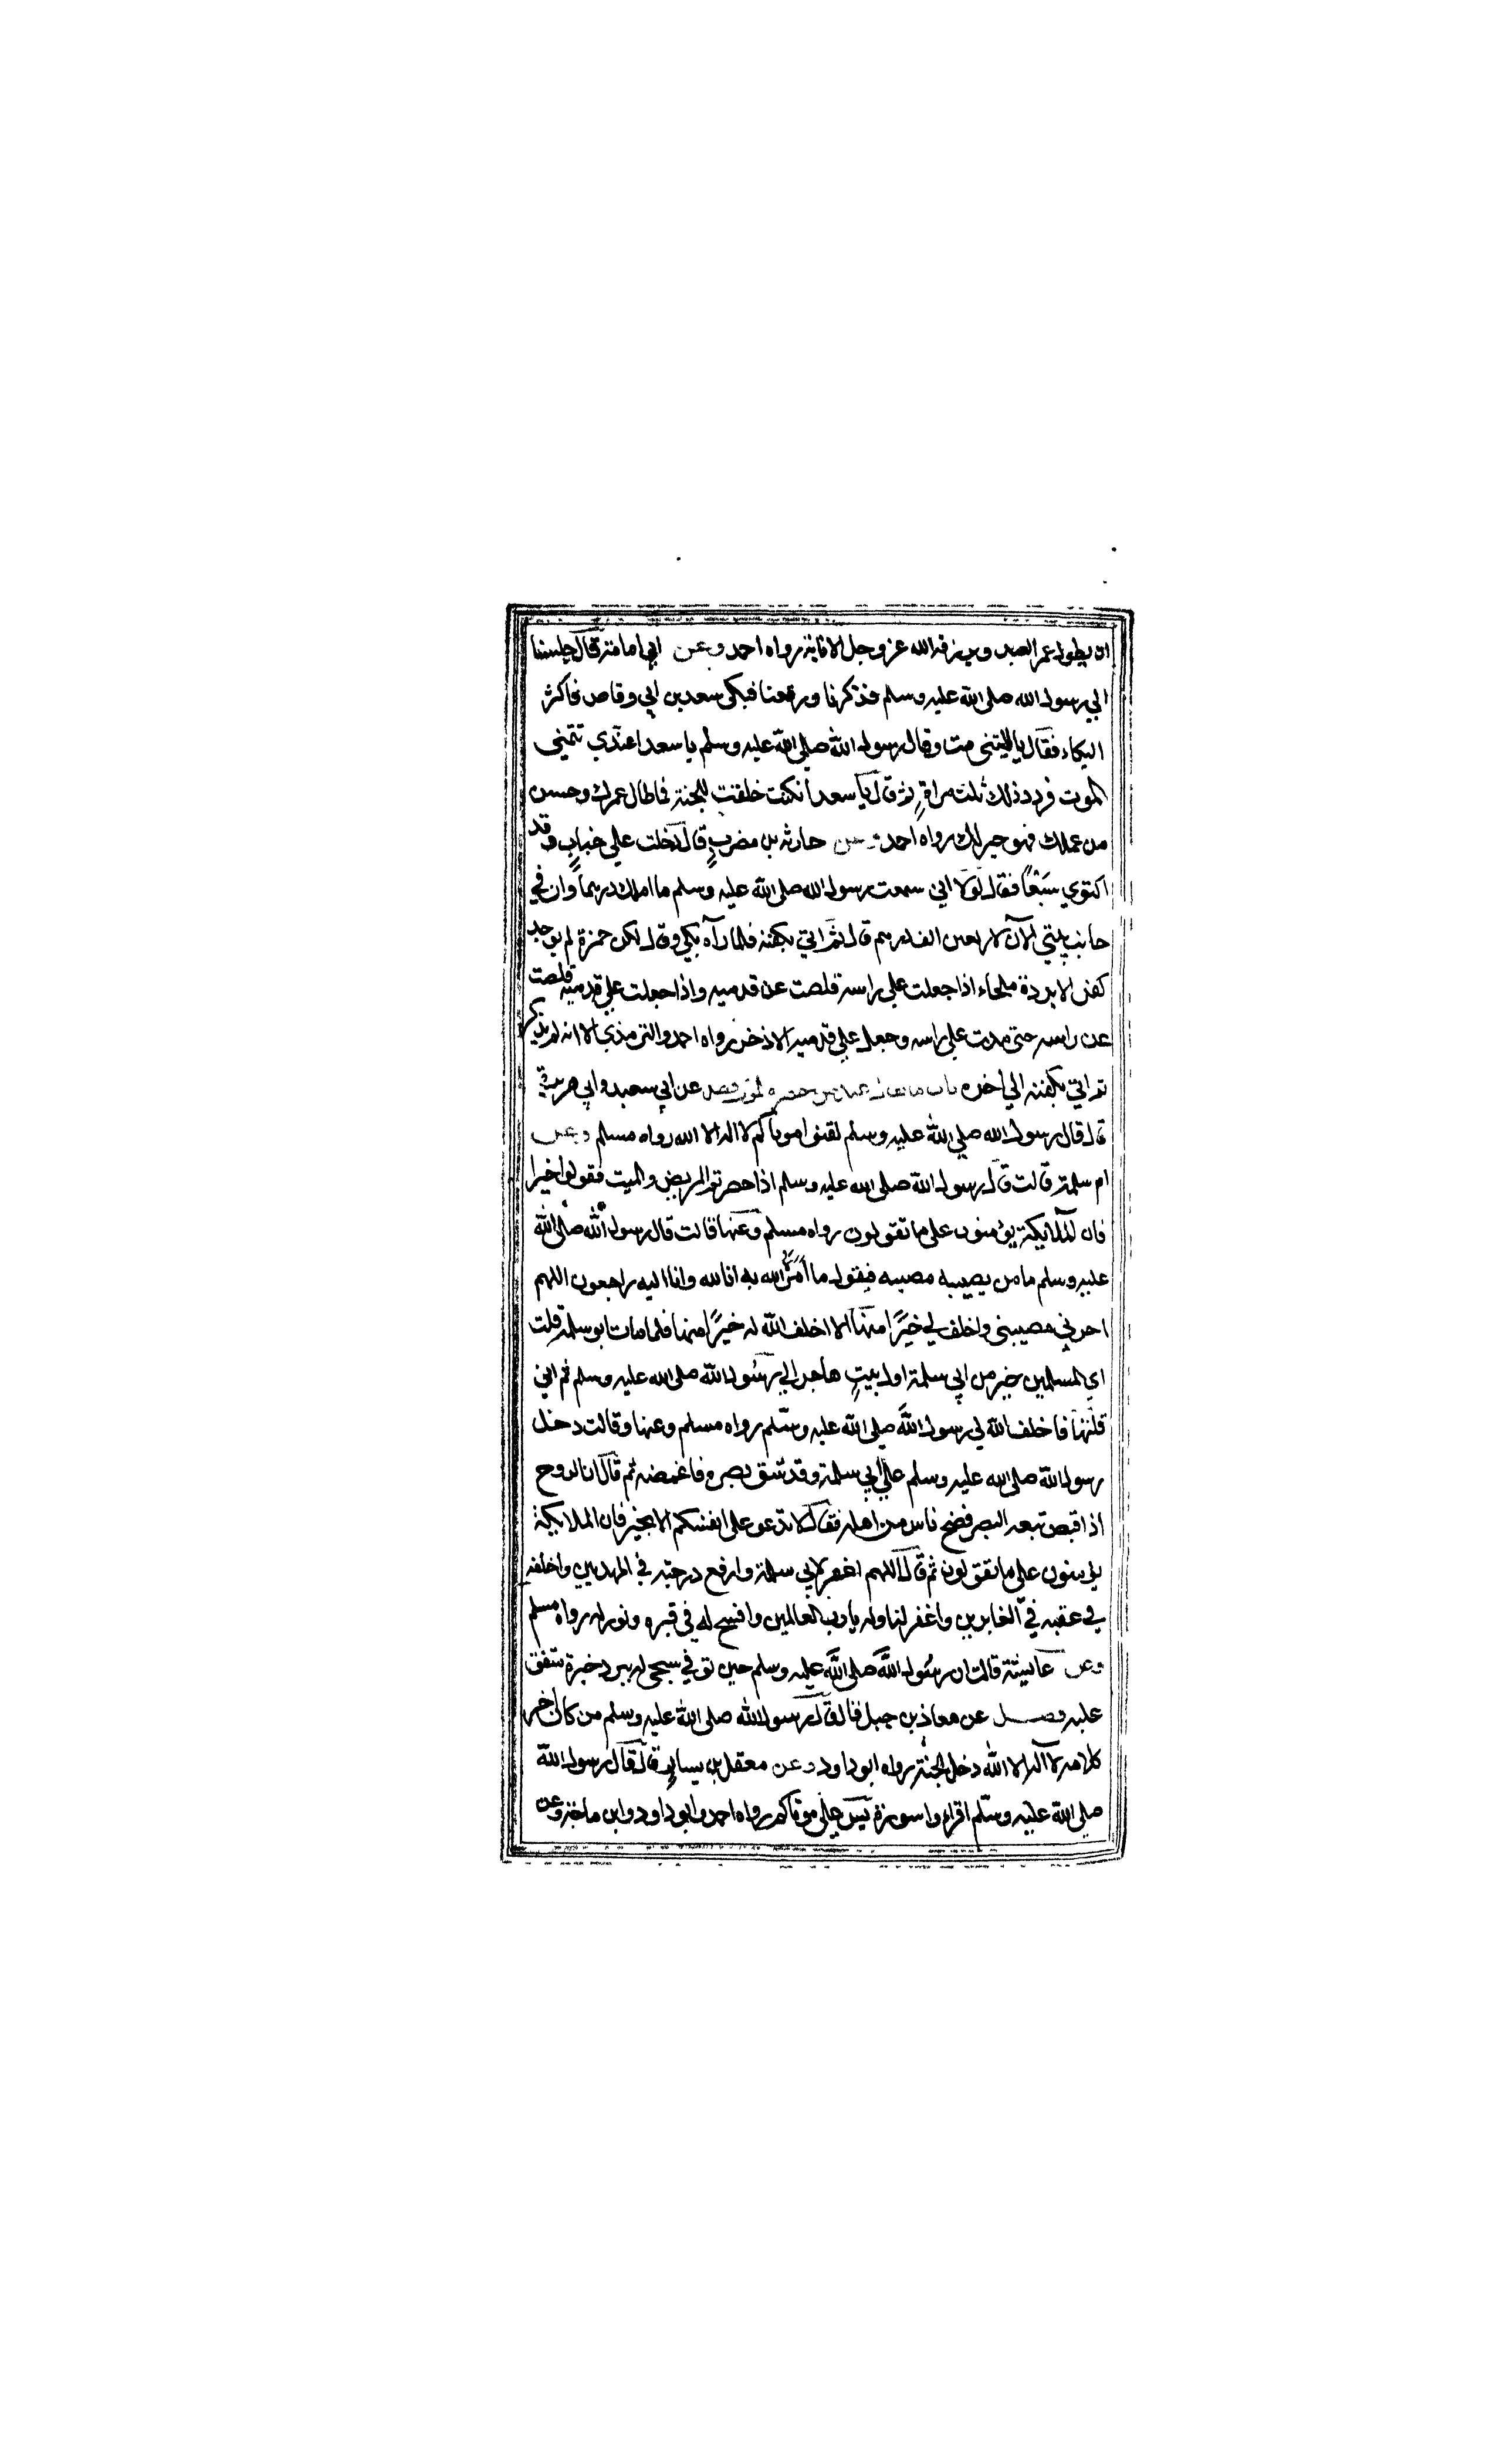 ان يطول عمر العبد ويرزقه الله عز وجل الانابة رواه احمد وعن ابي امامة قال جلسنا
الي رسول الله صلى الله عليه وسلم فذكرنا ورققنا فبكى سعد بن ابي وقاص فاكثر
البكاء فقال يا ليتني مت وقال رسول الله صلى الله عليه وسلم يا سعد اعندي تتمني
الموت فردد ذلك ثلث مرات ثم قال يا سعد ان كنت خلقت للجنة فاطال عمرك وحسن
من عملك فهو خير لك رواه احمد وعن حارثه بن مضرب قال دخلت علي خباب وقد
اكتوي سبعا فقال لولا اني سمعت رسول الله صلى الله عليه وسلم ما املك درهما وان في
جانب بيتي الآن لاربعين الف درهم قال ثم اتي بكفنه فلما رآه بكي وقال لكن حمزة لم يوجد
كفن الا بردة ملحاء اذا جعلت علي راسه قلصت عن قدميه واذا جعلت علي قدميه قلصت
عن راسه حتى مدت علي راسه وجعل علي قدميه الاذخر رواه احمد والترمذي الا انه لم يذكر
ثم اتي بكفنه الي اخره باب ما يقال عند من حضره الموت فصل عن ابي سعيد وابي هريرة
قال قال رسول الله صلي الله عليه وسلم لقنوا موتاكم لا اله الا الله رواه مسلم وعن
ام سلمة قالت قال رسول الله صلى الله عليه وسلم اذا حضرتم المريض والميت فقولوا خيرا
فان الملائيكة يؤمنون على ما تقولون رواه مسلم وعنها قالت قال رسول الله صلى الله
عليه وسلم ما من يصيبه مصيبه فيقول ما امره الله به انا لله وانا اليه راجعون اللهم
اجرني مصيبتي واخلف لي خيرا منها الا اخلف الله له خيرا منها فلما مات ابو سلمة قلت
اي المسلمين خير من ابي سلمة اول بيت هاجر الي رسول الله صلى الله عليه وسلم ثم اني
قلتها فاخلف الله لي رسول الله صلى الله عليه وسلم رواه مسلم وعنها وقالت دخل
رسول الله صلى الله عليه وسلم علي ابي سلمة وقد شق بصره فاغمضه ثم قال ان الروح
اذا قبض تبعه البصر فضج ناس من اهله فقال لا تدعو على انفسكم الا بخير فان الملائيكة
يؤمنون على ما تقولون ثم قال اللهم اغفر لابي سلمة وارفع درجته في المهديين واخلفه
في عقبه في الغابرين واغفر لنا وله يا رب العالمين وافسح له في قبره ونور له رواه مسلم
وعن عائيشة قالت ان رسول الله صلى الله عليه وسلم حين توفي سجي ببرد حبرة متفق
عليه فصل عن معاذ بن جبل قال قال رسول الله صلى الله عليه وسلم من كان اخر
كلامه لا اله الا الله دخل الجنة رواه ابو داود وعن معقل بن يسار قال قال رسول الله
صلى الله عليه وسلم اقراء وا سورة يس على موتاكم رواه احمد وابو داود وابن ماجة وعن